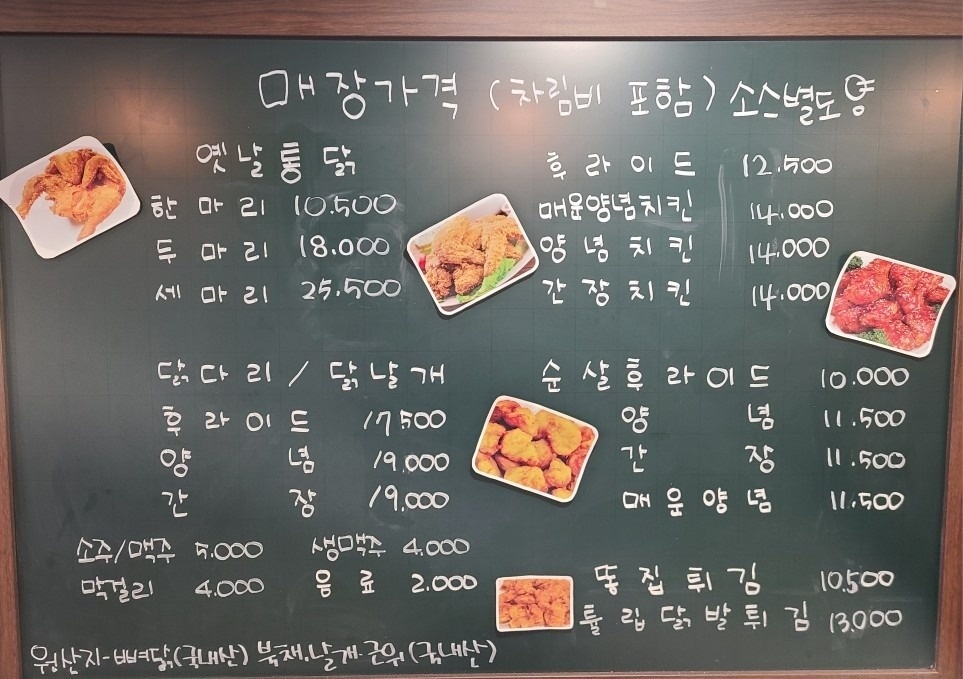 매장가격 (차림비 포함) 소스별도양
옛날통닭
한마리 10.500
두마리 18.000
세마리 25.500
후라이드 12.500
매운양념치킨 14.000
양념치킨 14.000
간장치킨 14.000
닭다리 / 닭날개
후라이드 17500
양념 19.000
간장 19.000
순살후라이드 10.000
양념 11.500
간장 11.500
매운양념 11.500
소주/맥주 5.000 생맥주 4.000
막걸리 4.000 음료 2.000
똥집튀김 10.500
튤립닭발튀김 13.000
원산지-뼈닭(국내산) 북채.날개.근위(국내산)